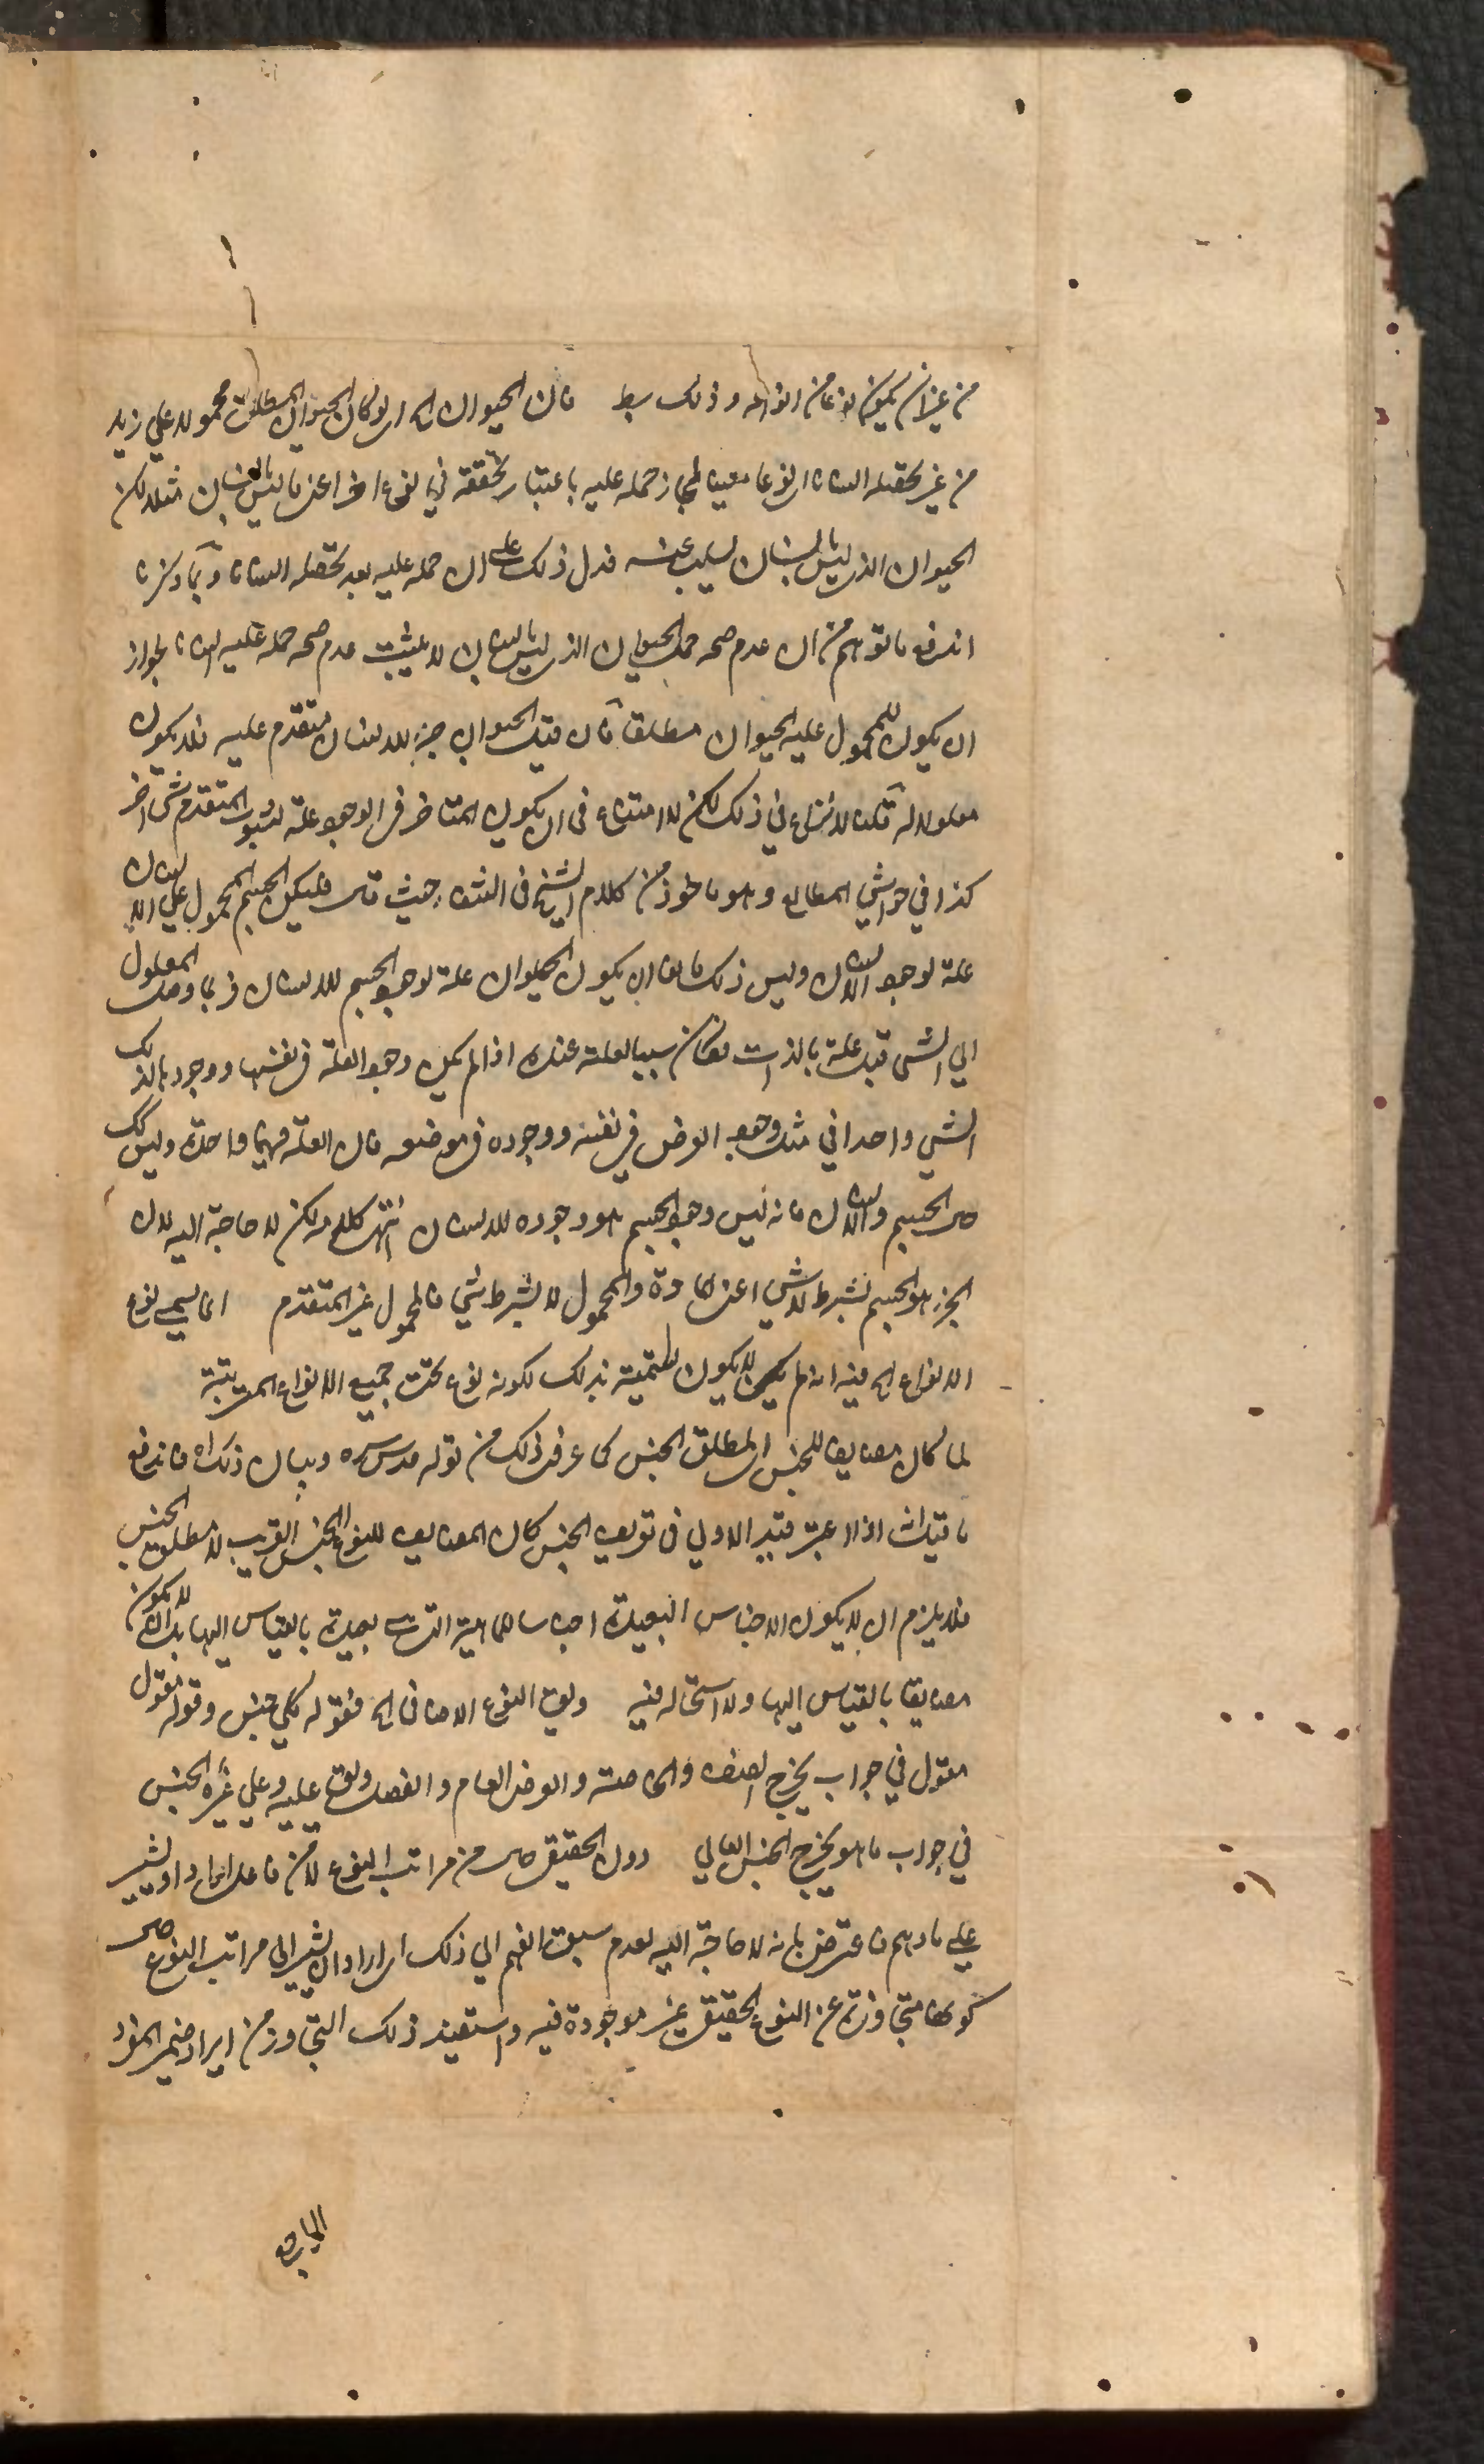 من غير ان يكون نوعا من انواعه وذلك بط فان الحيوان الخ اي لو كان الحيوان المطلق محمولا على زيد
من غير تحصله انسانا اي نوعا معينا لجاز حمله عليه باعتبار تحققه في نوع اخر اعني ما ليس بانسان مثلا لكن
الحيوان الذي ليس بانسان يسلب عنه فدل ذلك على ان حمله عليه بعد تحصله انسانا وبما ذكرنا
اندفع ما توهم من ان عدم صحة حمل الحيوان الذي ليس بانسان لا يثبت عدم صحة حمله عليه انسانا لجواز
ان يكون المحمول عليه الحيوان مطلقا فان قيل الحيوان جزء للانسان متقدم عليه فلا يكون
معلولا له قلت لا نزاع في ذلك لكن لا امتناع في ان يكون المتاخر في الوجود علة لثبوت المتقدم لشي اخر
كذا في حواشي المطالع وهو ماخوذ من كلام الشيخ في الشفاء حيث قال فليكن الجسم المحمول على الانسان
علة لوجود الانسان وليس ذلك مانعا ان يكون الحيوان علة لوجود الجسم للانسان فربما وصل المعلول
الى الشي قبل علة بالذات فكان سببا لعلته عنده اذا لم يكن وجود العلة في نفسها ووجودها لذلك
الشي واحدا في مثل وجود العرض في نفسه ووجوده في موضعه فان العلة فيهما واحدة وليس كك
حال الجسم والانسان فانه ليس وجود الجسم هو وجوده للانسان انتهى كلامه لكن لا حاجة اليه لان
الجزء هو الجسم بشرط لا شي اعني المادة والمحمول لا بشرط شي فالمحمول غير المتقدم انما يسمى نوع
الانواع الخ فيه انه لم لا يكون تسميته بذلك لكونه نوع تحت جميع الانواع المترتبة
لما كان مضايفا للجنس اي لمطلق الجنس كما عرف ذلك من قوله قدس سره وبيان ذلك انه فاندفع
ما قيل انه اذا اعتبر قيد الاولى في تعريف الجنس كان المضايف للنوع الجنس القريب لا مطلق الجنس
فلا يلزم ان لا يكون الاجناس البعيدة اجناسا للماهية التي هي بعيدة بالقياس اليها بل ان لا يكون
مضايفا بالقياس اليها ولا استحالة فيه ولوقيل النوع الاضافي الخ فقوله كلي جنس وقوله مقول
مقول في جواب يخرج الصنف والخاصة والعرض العام والفصل وقوله عليه وعلى غيره الجنس
في جواب ما هو يخرج الجنس العالي دون الحقيقي حال من مراتب النوع لا من فاعل اراد او يشير
على ما وهم فاعترض بانه لا حاجة اليه لعدم سبق الفهم الى ذلك اي اراد ان يشير الى مراتب النوع حال
كونها متجاوزة عن النوع الحقيقي غير موجودة فيه واستفيد ذلك التجاوز من ايراد ضمير المفرد